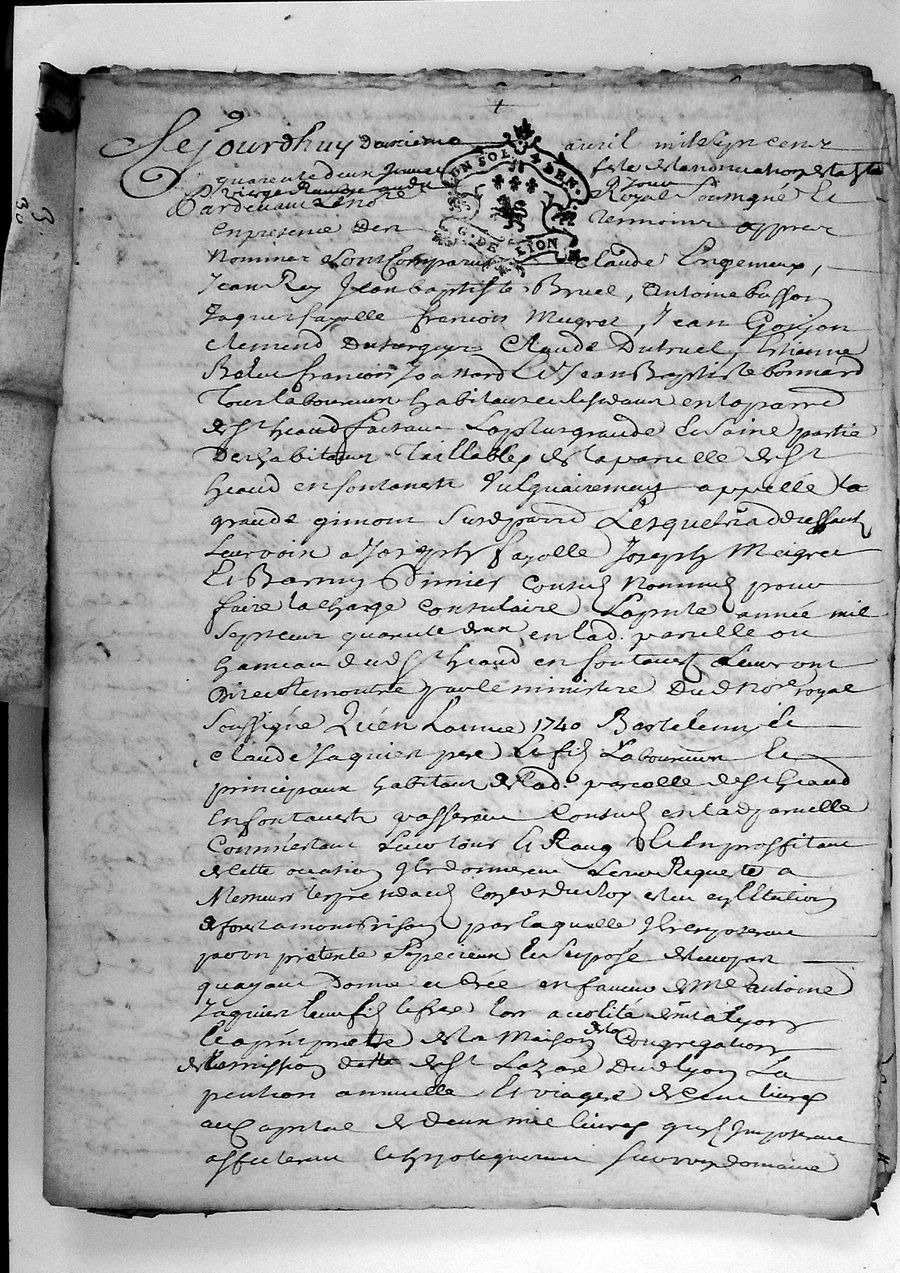 Ce Jourdhuy deuxieme avril mil sept cens
quarente deux
Pardevant Le no.re Royal Soussigné Et
En presence des temoins apprez
Nommez sont Comparus Claude Engemeux,
Jean Rey Jean baptiste Bruel, Antoine basson
Jaques fayolle francois Meigret, Jean Gonjon
Clemend Claude Dutruel, Etienne
francois Et Jean Baptiste bonnard
Tous laboureurs habitans en la parre
de st heand faisant La plus grande Et saine partie
Des habitans Taillables de la parcelle de St
heand en fontanest Vulgairement appellé la
grande gimont susd parre Lesquels adressant
Leur voix a Joseph fayolle Joseph Meigret
Et Barmy Consuls Nommés pour
faire la charge Consulaire La pnte année mil
Sept cens quarente deux en lad. parcelle ou
hameau dud St heand en fontanest Leur ont
Dit et Remontré par le ministere Dud no.re royal
Soussigné Qu'en L'année 1740 Bartelemi Et
Claude Jaquier pere Et fils Laboureurs Et
principaux habitans de lad. parcelle de St heand
En fontanest passerent Consuls en lad parcelle
Comme estant Leur tour Et Rang Et En proffitant
de cette occasion Ils donnerent Leur Requette a
Messieurs les presidans Con.ers du Roy en L'Election
de forest a montbrison par laquelle Ils exposerent
pour pretexte Specieux Et Suposé de leur part
qu'ayant Donné en faveur de Me antoine
Jaquier leur fils Et frere lors accolité
de la Maison de la Congregation
de la mission de St Lazare Dud Lyon La
pention annuelle Et viagere de cent livres
au Capital de deux mil livres qu'ils Imposerent
affecterent et hypotequerent sur domaine